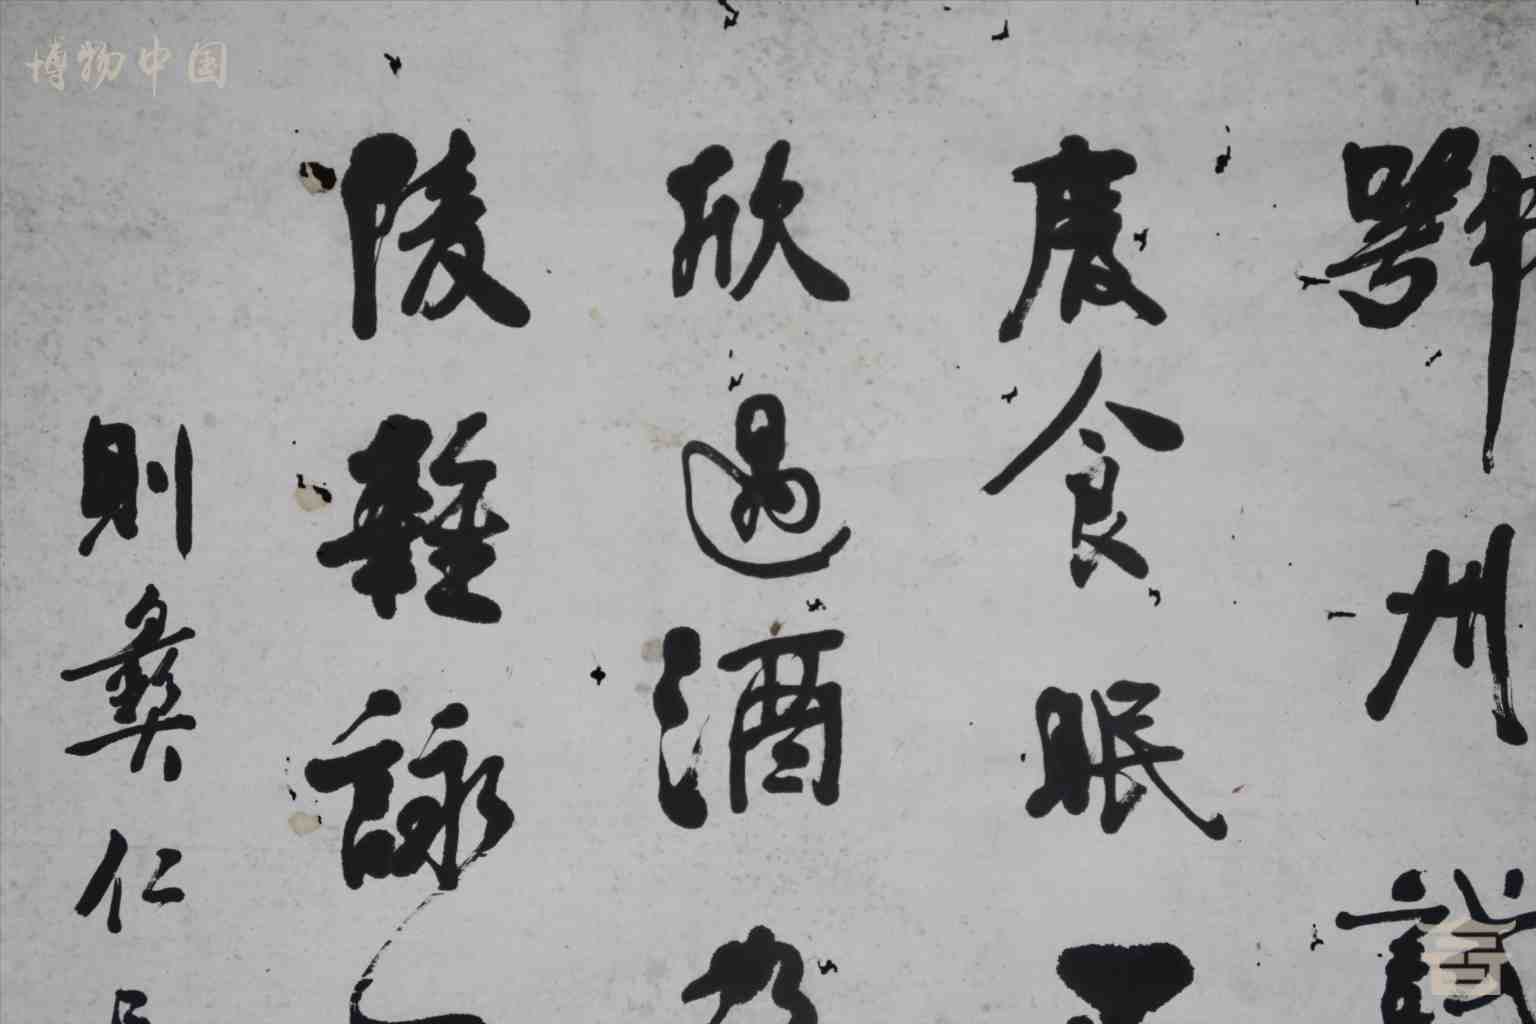 博物中国
鄂州試
廢食眠
欣遇酒
陵雜詠
則彝仁